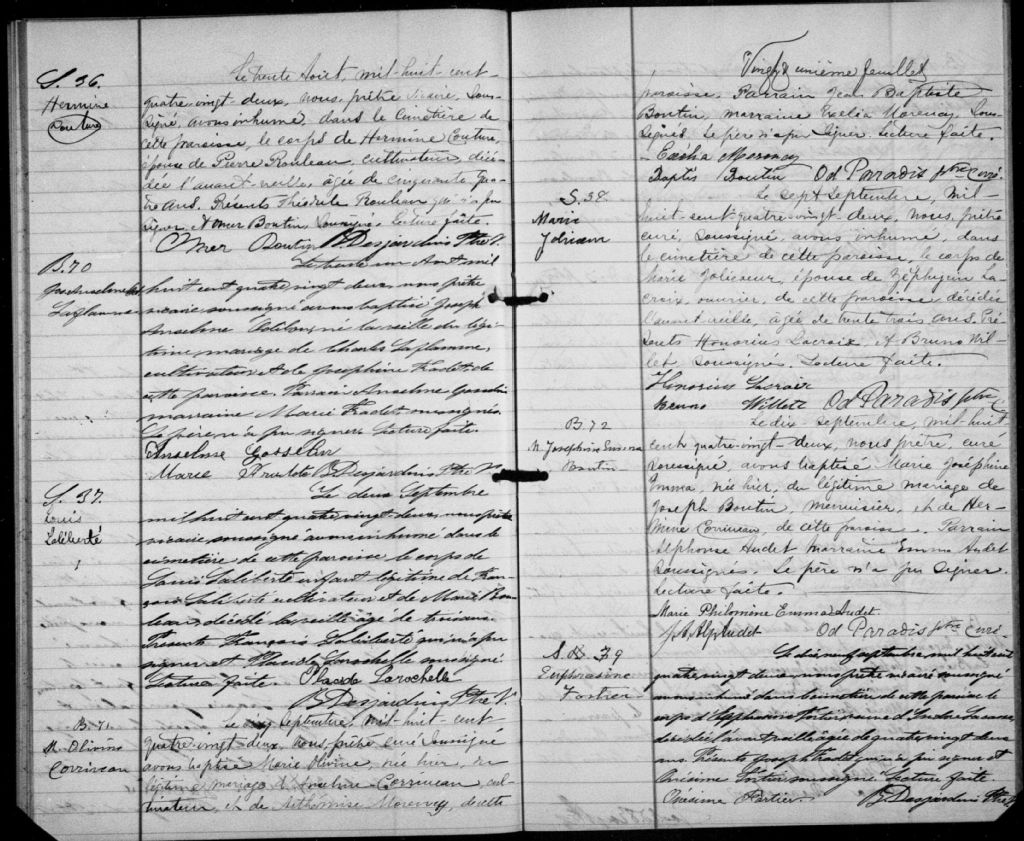 S. 36.
Hermine
Couture
Le trente Août, mil-huit-cent-
quatre-vingt-deux, nous, prêtre vicaire, sous-
signé, avons inhumé, dans le cimetière de
cette paroisse, le corps de Hermine Couture,
épouse de Pierre Rouleau, cultivateur, décé-
dée l'avant-veille, âgée de cinquante qua-
tre ans. Présents Théodule Rouleau qui n'a pu
signer et Omer Boutin, soussigné, lecture faite.
Omer Boutin B. Desjardins Ptre V.
B. 70
Jos Anselme
Laflamme
Le trente un Aout mil
huit cent quatre vingt deux nous prêtre
vicaire soussigné avons baptisé Joseph
Anselme né la veille du légi-
time mariage de Charles Laflamme,
cultivateur et de Joséphine Fradet de
cette paroisse. Parrain Anselme Gosselin
marraine Marie Fradet soussignés.
Le père n'a pu signer. Lecture faite.
Anselme Gosselin
Marie B. Desjardins Ptre V.
S. 37.
Louis
Laliberté
Le deux Septembre
mil huit cent quatre vingt deux, nous prêtre
vicaire soussigné avons inhumé dans le
cimetière de cette paroisse le corps de
Louis Laliberté enfant légitime de Fran-
çois Laliberté cultivateur et de Marie Rou-
leau, décédé la veille âgé de trois ans.
Présents François Laliberté qui n'a pu
signer et Placide Larochelle soussigné
Lecture faite. Placide Larochelle
B. Desjardins Ptre V.
B. 71.
M. Olivine
Corriveau
Le cinq septembre, mil-huit-cent-
quatre-vingt-deux, nous, prêtre, curé, soussigné
avons baptisé Marie Olivine, née hier, du
légitime mariage d'Anselme Corriveau, cul-
tivateur, et de Arthémise Morency, de cette
Vingt unième feuillet
paroisse. Parrain Jean Baptiste
Boutin, marraine Exelia Morency, sous-
signés. Le père n'a pu signer. Lecture faite.
Exilia Morency
Baptis Boutin Od Paradis ptre Curé.
S. 38.
Marie
Jolicœur
Le sept Septembre, mil-
huit-cent-quatre-vingt-deux, nous, prêtre
curé, soussigné, avons inhumé, dans
le cimetière de cette paroisse, le corps de
Marie Jolicœur, épouse de Zéphyrin La-
croix, ouvrier, de cette paroisse, décédée
l'avant-veille, âgée de trente trois ans. Pré-
sents Honorius Lacroix et Bruno Wil-
let, soussignés. Lecture faite.
Honorius Lacroix
Bruno Willett Od Paradis ptre C
B. 72
M. Joséphine Emma
Boutin
Le dix Septembre, mil-huit-
cent-quatre-vingt-deux, nous, prêtre, curé
soussigné, avons baptisé Marie Joséphine
Emma, née hier, du légitime mariage de
Joseph Boutin, menuisier, et de Her-
mine Corriveau, de cette paroisse. Parrain
Alphonse Audet Marraine Emma Audet
soussignés. Le père n'a pu signer.
Lecture faite.
Marie Philomène Emma Audet
J. A. Alp Audet Od Paradis ptre Curé.
S. 39
Euphrosine
Fortier
Le dix neuf septembre mil huit cent
quatre vingt deux nous prêtre vicaire soussigné
avons inhumé dans le cimetière de cette paroisse le
corps d'Euphrosine Fortier veuve d'André
décédée l'avant veille âgée de quatre vingt deux
ans. Présents Joseph Fradet qui n'a pu signer et
Onésime Fortier soussigné. Lecture faite.
Onésime Fortier B. Desjardins Ptre V.